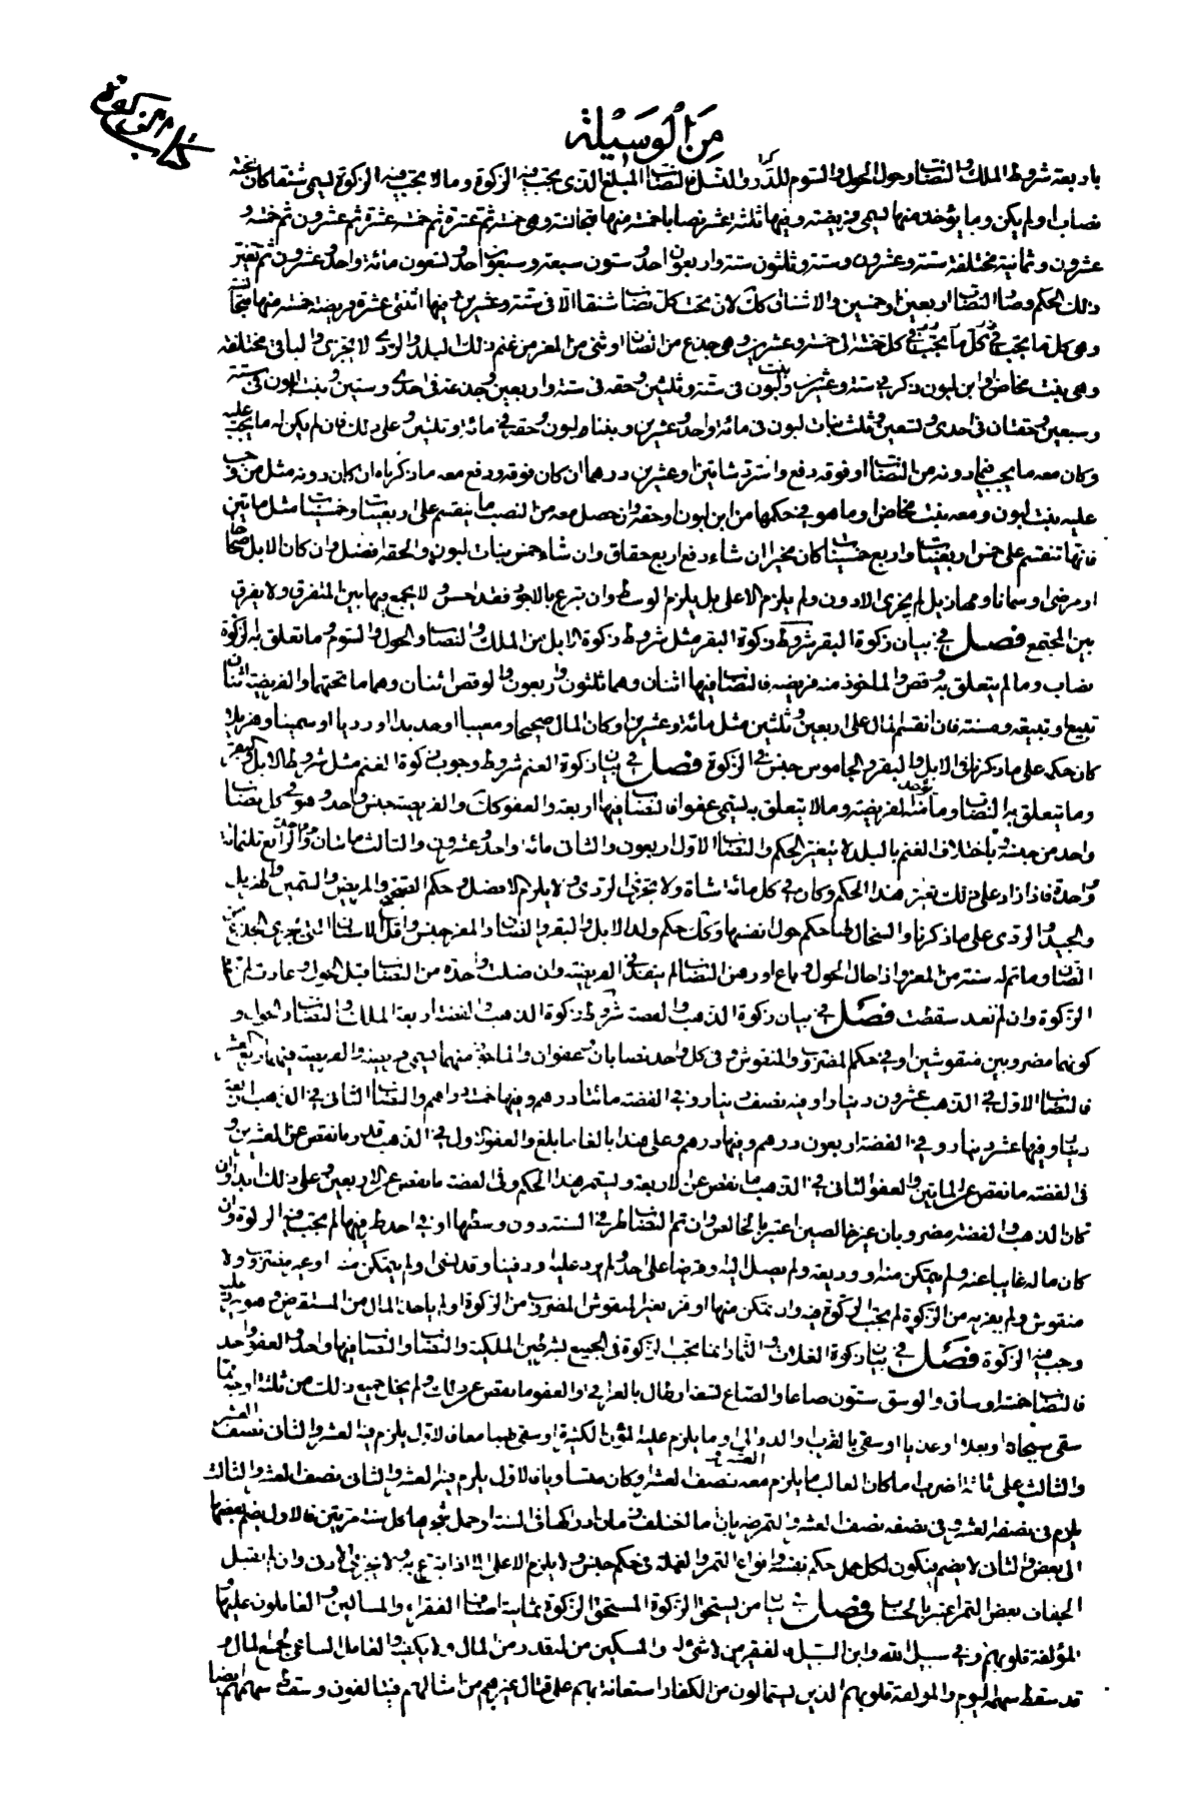 كتاب الزكوة
من الوسيلة
باربعة شروط الملك والنصاب وحول الحول والسوم للدر والنسل فالنصاب المبلغ الذى يجب فيه الزكوة وما لا يجب فيه الزكوة ليسمى شنقا كان تحته
نصاب او لم يكن وما يؤخذ منها ليسمى فريضته وفيها ثلثة عشر نصابا خمسة منها متجانسة وهى خمسة ثم عشرة ثم خمسة عشرة ثم عشرون ثم خمسة و
عشرون وثمانية مختلفة ستة وعشرون وستة وثلثون ستة واربعون احد وستون ستة وسبعون احد وتسعون مائة واحد وعشرون ثم تغير
ذلك الحكم وصار النصاب اربعين او خمسين والاشناق كك لان تحت كل نصاب شنقا الا فى ستة وعشرين وفيها اثنتى عشرة فريضة خمسة منها متجانسة
وهى كل ما يجب فى كل خمسة الى خمسة وعشرين وهى جذع من الضان او ثنى من المعز من غنم ذلك البلد والردى لا يجزى والباقى مختلفة
وهى بنت مخاض او ابن لبون ذكر فى ستة وعشرين وبنت لبون فى ستة وثلثين وحقه فى ستة واربعين وجذعة فى احدى وستين وبنتا لبون فى ستة
وسبعين وحقتان فى احدى وتسعين وثلث بنات لبون فى مائة واحد وعشرين وبنتا لبون وحقه فى مائة وثلثين وعلى ذلك فان لم يكن له ما يجب عليه
وكان معه ما يجب فيما دونه من النصاب او فوقه دفع واسترد شاتين او عشرين درهما ان كان فوقه ودفع معه ما ذكرناه ان كان دونه مثل من وجب
عليه بنت لبون ومعه بنت مخاض او ما هو فى حكمها من ابن لبون او حقه وان حصل معه من النصب ما ينقسم على اربعينات وخمسينات مثل مائتين
فانها تنقسم على خمس اربعينات واربع خمسينات كان مخيرا ان شاء دفع اربع حقاق وان شاء خمس بنات لبون والحقه افضل وان كان الابل صحاحا
او مرضى او سمانا ومهازيل لم يجزى الادون ولم يلزم الاعلى بل يلزم الوسط وان تبرع بالاجود فقد احسن ولا يجمع فيها بين المتفرق ولا يفرق
بين المجتمع فصل فى بيان زكوة البقر شروط زكوة البقر مثل شروط زكوة الابل من الملك والنصاب والحول والسوم وما تعلق به الزكوة
نصاب وما لم يتعلق به وقص والماخوذ منه فريضه فالنصاب فيها اثنان وهما ثلثون واربعون والوقص اثنان وهما ما تحتهما والفريضة اثنان
تبيع او تبيعه ومسنه فان انقسم المال على اربعين وثلثين مثل مائة وعشرين او كان المال صحيحا ومعيبا او جيدا ورديا او سمينا وهزيلا
كان حكمه على ما ذكرنا فى الابل والبقر والجاموس جنس فى الزكوة فصل فى بيان زكوة الغنم شروط وجوب زكوة الغنم مثل شروط الابل والبقر
وما يتعلق به النصاب وما يؤخذ منه الفريضة وما لا يتعلق به يسمى عفوا فالنصاب فيها اربعة والعفو كك والفريضة جنس واحد وهو فى كل نصاب
واحد من جنسه وباختلاف الغنم بالبلد لا يتغير الحكم والنصاب الاول اربعون والثانى مائة واحد وعشرون والثالث مائتان وواحدة والرابع ثلثمائة
وواحدة فاذا زاد على ذلك تغير هذا الحكم وكان فى كل مائة شاة ولا يجزى الردى ولا يلزم الافضل وحكم الصحيح والمريض والسمين والهزيل
والجيد والردى على ما ذكرنا والسخال لها حكم حول انفسها وكك حكم ولد الابل والبقر والضان والمعز جنس واقل الاسنان الذى يجزى الجذع من
الضان وما تم له سنة من المعز واذا حال الحول وباع او رهن النصاب لم ينفذ فى الفريضة وان ضلت واحدة من النصاب قبل الحول وعادت لم تجب
الزكوة وان لم تعد سقطت فصل فى بيان زكوة الذهب والفضة شروط زكوة الذهب والفضة اربعة الملك والنصاب والحول و
كونهما مضروبين منقوشين او فى حكم المضروب والمنقوش وفى كل واحد نصابان وعفوان والماخوذ منهما يسمى فريضة والفريضة فيهما ربع العشر
فالنصاب الاول فى الذهب عشرون دينارا وفيه نصف دينار وفى الفضة مائتا درهم وفيها خمسة دراهم والنصاب الثانى فى الذهب اربعة
دنانير وفيها عشر دينار وفى الفضة اربعون درهم وفيها درهم وعلى هذا بالغا ما بلغ والعفو الاول فى الذهب قدر ما نقص عن العشرين و
فى الفضة ما نقص عن المايتين والعفو الثانى فى الذهب ما نقص عن الاربعة وليستمر هذا الحكم وفى الفضة ما نقص عن الاربعين وعلى ذلك ابدا وان
كان الذهب والفضة مضروبان غير خالصين اعتبر بالخالص وان تم النصاب فى طرفى السنة دون وسطها او فى احد طرفيها لم يجب فيه الزكوة وان
كان ماله غايبا عنه ولم يتمكن منه او وديعة ولم يصل اليه او قرضا على احد ولم يرد عليه او دفينا وقد نسى او لم يتمكن منه او غير مضروب ولا
منقوش ولم يفر به من الزكوة لم يجب الزكوة فيه وان تمكن منها او فر بغير المنقوش المضروب من الزكوة او لم ياخذ المال من المستقرض وهو يرد عليه
وجب فيه الزكوة فصل فى بيان زكوة الغلات والثمار انما يجب الزكوة فى الجميع بشرطين الملكية والنصاب والنصاب فيها واحد والعفو واحد
فالنصاب خمسة اوساق والوسق ستون صاعا والصاع تسعة ارطال بالعراقى والعفو ما نقص عن ذلك ولم يخل جميع ذلك من ثلثة اوجه اما
سقى سيحا او بعلا او عذيا او سقى بالغرب والدوالى وما يلزم عليه المؤن الكثيرة او سقى بهما معا فالاول يلزم فيه العشر والثانى نصف العشر
والثالث على ثلثة اضرب اما كان الغالب ما يلزم معه نصف العشر او العشر او كان متساويا فالاول يلزم فيه العشر والثانى نصف العشر والثالث
يلزم فى نصفه العشر وفى نصفه نصف العشر والتمر ضربان ما اختلف زمان ادراكها فى السنة او حمل نخلها كل سنة مرتين فالاول يضم بعضها
الى بعض والثانى لا يضم فيكون لكل حمل حكم نفسه وانواع التمر والغلة فى حكم جنس ولا يلزم الاعلى الا اذا تبرع به ولا يجزى الادون وان لم يقبل
الجفاف بعض التمر اعتبر بالحساب فصل فى بيان من يستحق الزكوة المستحق الزكوة ثمانية اصناف الفقراء والمساكين والعاملون عليها و
المؤلفة قلوبهم وفى سبيل الله وابن السبيل فالفقير من لا شئ له والمسكين من له قدر من المال ولا يكفيه والعامل الساعى لجمع المال و
قد سقط سهمه اليوم والمؤلفة قلوبهم الذين ليستمالون من الكفار استعانة بهم على قتال غيرهم من امثالهم فيتالفون وسقط سهمهم ايضا